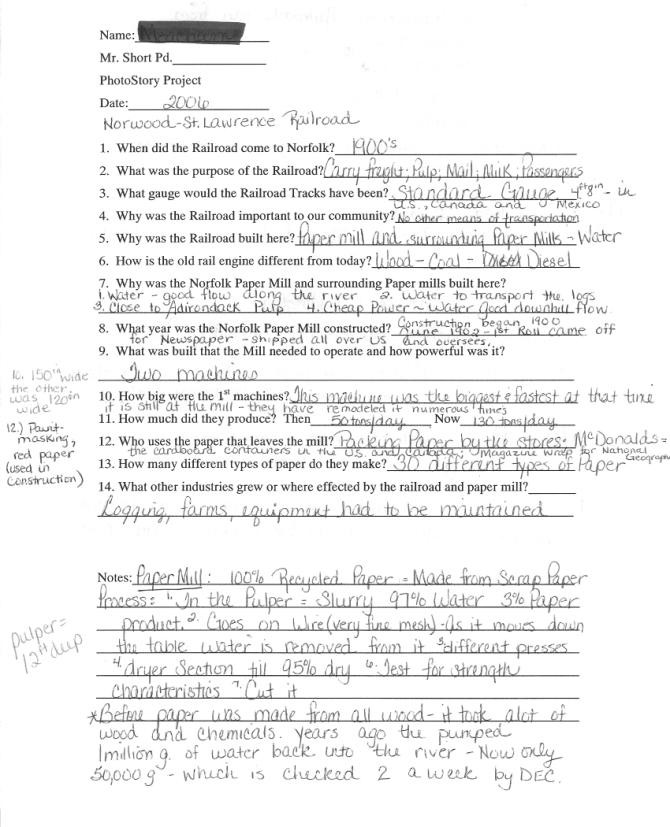 Name:
Mr. Short Pd.
PhotoStory Project
Date: 2006
Norwood-St. Lawrence Railroad
1. When did the Railroad come to Norfolk? 1900's
2. What was the purpose of the Railroad? Carry freight; Pulp; Mail; Milk; Passengers
3. What gauge would the Railroad Tracks have been? Standard Gauge 4ft 8in - in
U.S., Canada and Mexico
4. Why was the Railroad important to our community? No other means of transportation
5. Why was the Railroad built here? Paper mill and surrounding Paper Mills - Water
6. How is the old rail engine different from today? Wood - Coal - Diesel
7. Why was the Norfolk Paper Mill and surrounding Paper mills built here?
1. Water - good flow along the river 2. Water to transport the logs
3. Close to Adirondack Pulp 4. Cheap Power ~ Water Good downhill flow.
8. What year was the Norfolk Paper Mill constructed? Construction began 1900
June 1902 - 1st Roll came off
for Newspaper - shipped all over US and overseas.
9. What was built that the Mill needed to operate and how powerful was it?
Two machines
10. 150in wide
the other
was 120in
wide
10. How big were the 1st machines? This machine was the biggest & fastest at that time
it is still at the mill - they have remodeled it numerous times
11. How much did they produce? Then 50 tons/day Now 130 tons/day
12.) Paint-
masking,
red paper
(used in
construction)
12. Who uses the paper that leaves the mill? Packing Paper by the stores; McDonalds =
the cardboard containers in the U.S. and Canada; Magazine wrap for National
Geograph
13. How many different types of paper do they make? 30 different types of Paper
14. What other industries grew or where effected by the railroad and paper mill?
Logging, farms, equipment had to be maintained
Notes: Paper Mill: 100% Recycled Paper = Made from Scrap Paper
Process: 1. In the Pulper = Slurry 97% Water 3% Paper
product. 2. Goes on Wire (very fine mesh) - As it moves down
pulper =
12ft dup
the table water is removed from it 3. different presses
4. dryer Section till 95% dry 6. Test for strength
Characteristics 7. Cut it
*Before paper was made from all wood - it took alot of
wood and chemicals. Years ago the pumped
1million g. of water back into the river - Now only
50,000 g - which is checked 2 a week by DEC.